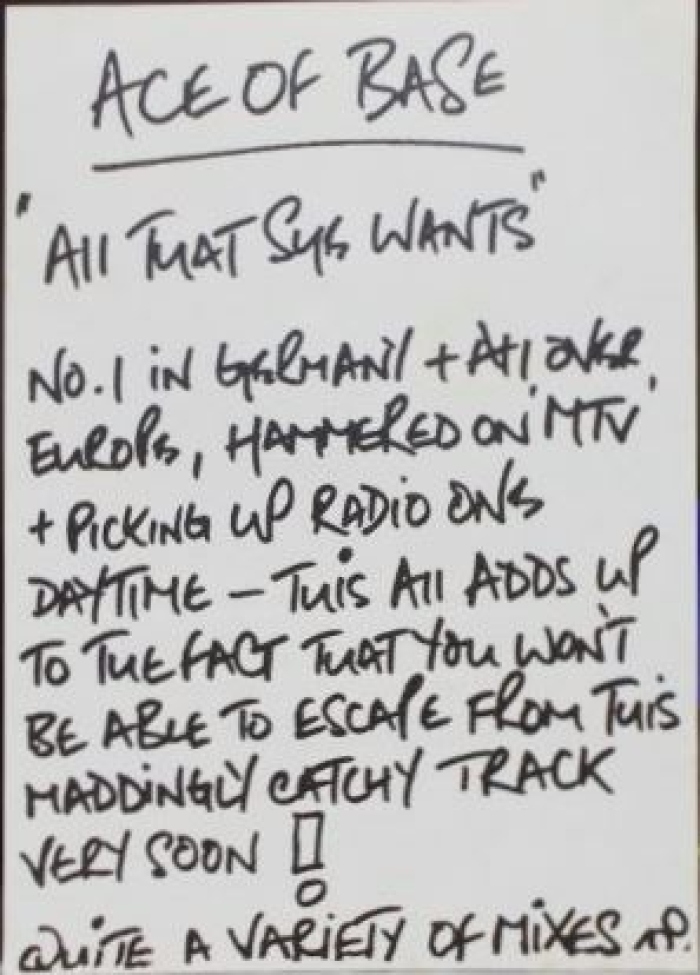 ACE OF BASE
"All THAT SHE WANTS"
NO.1 IN GERMANY + All OVER
EUROPE, HAMMERED ON MTV
+ PICKING UP RADIO ONE
DAYTIME – THIS All ADDS UP
TO THE FACT THAT YOU WON'T
BE ABLE TO ESCAPE FROM THIS
MADDINGLY CATCHY TRACK
VERY SOON!
QUITE A VARIETY OF MIXES